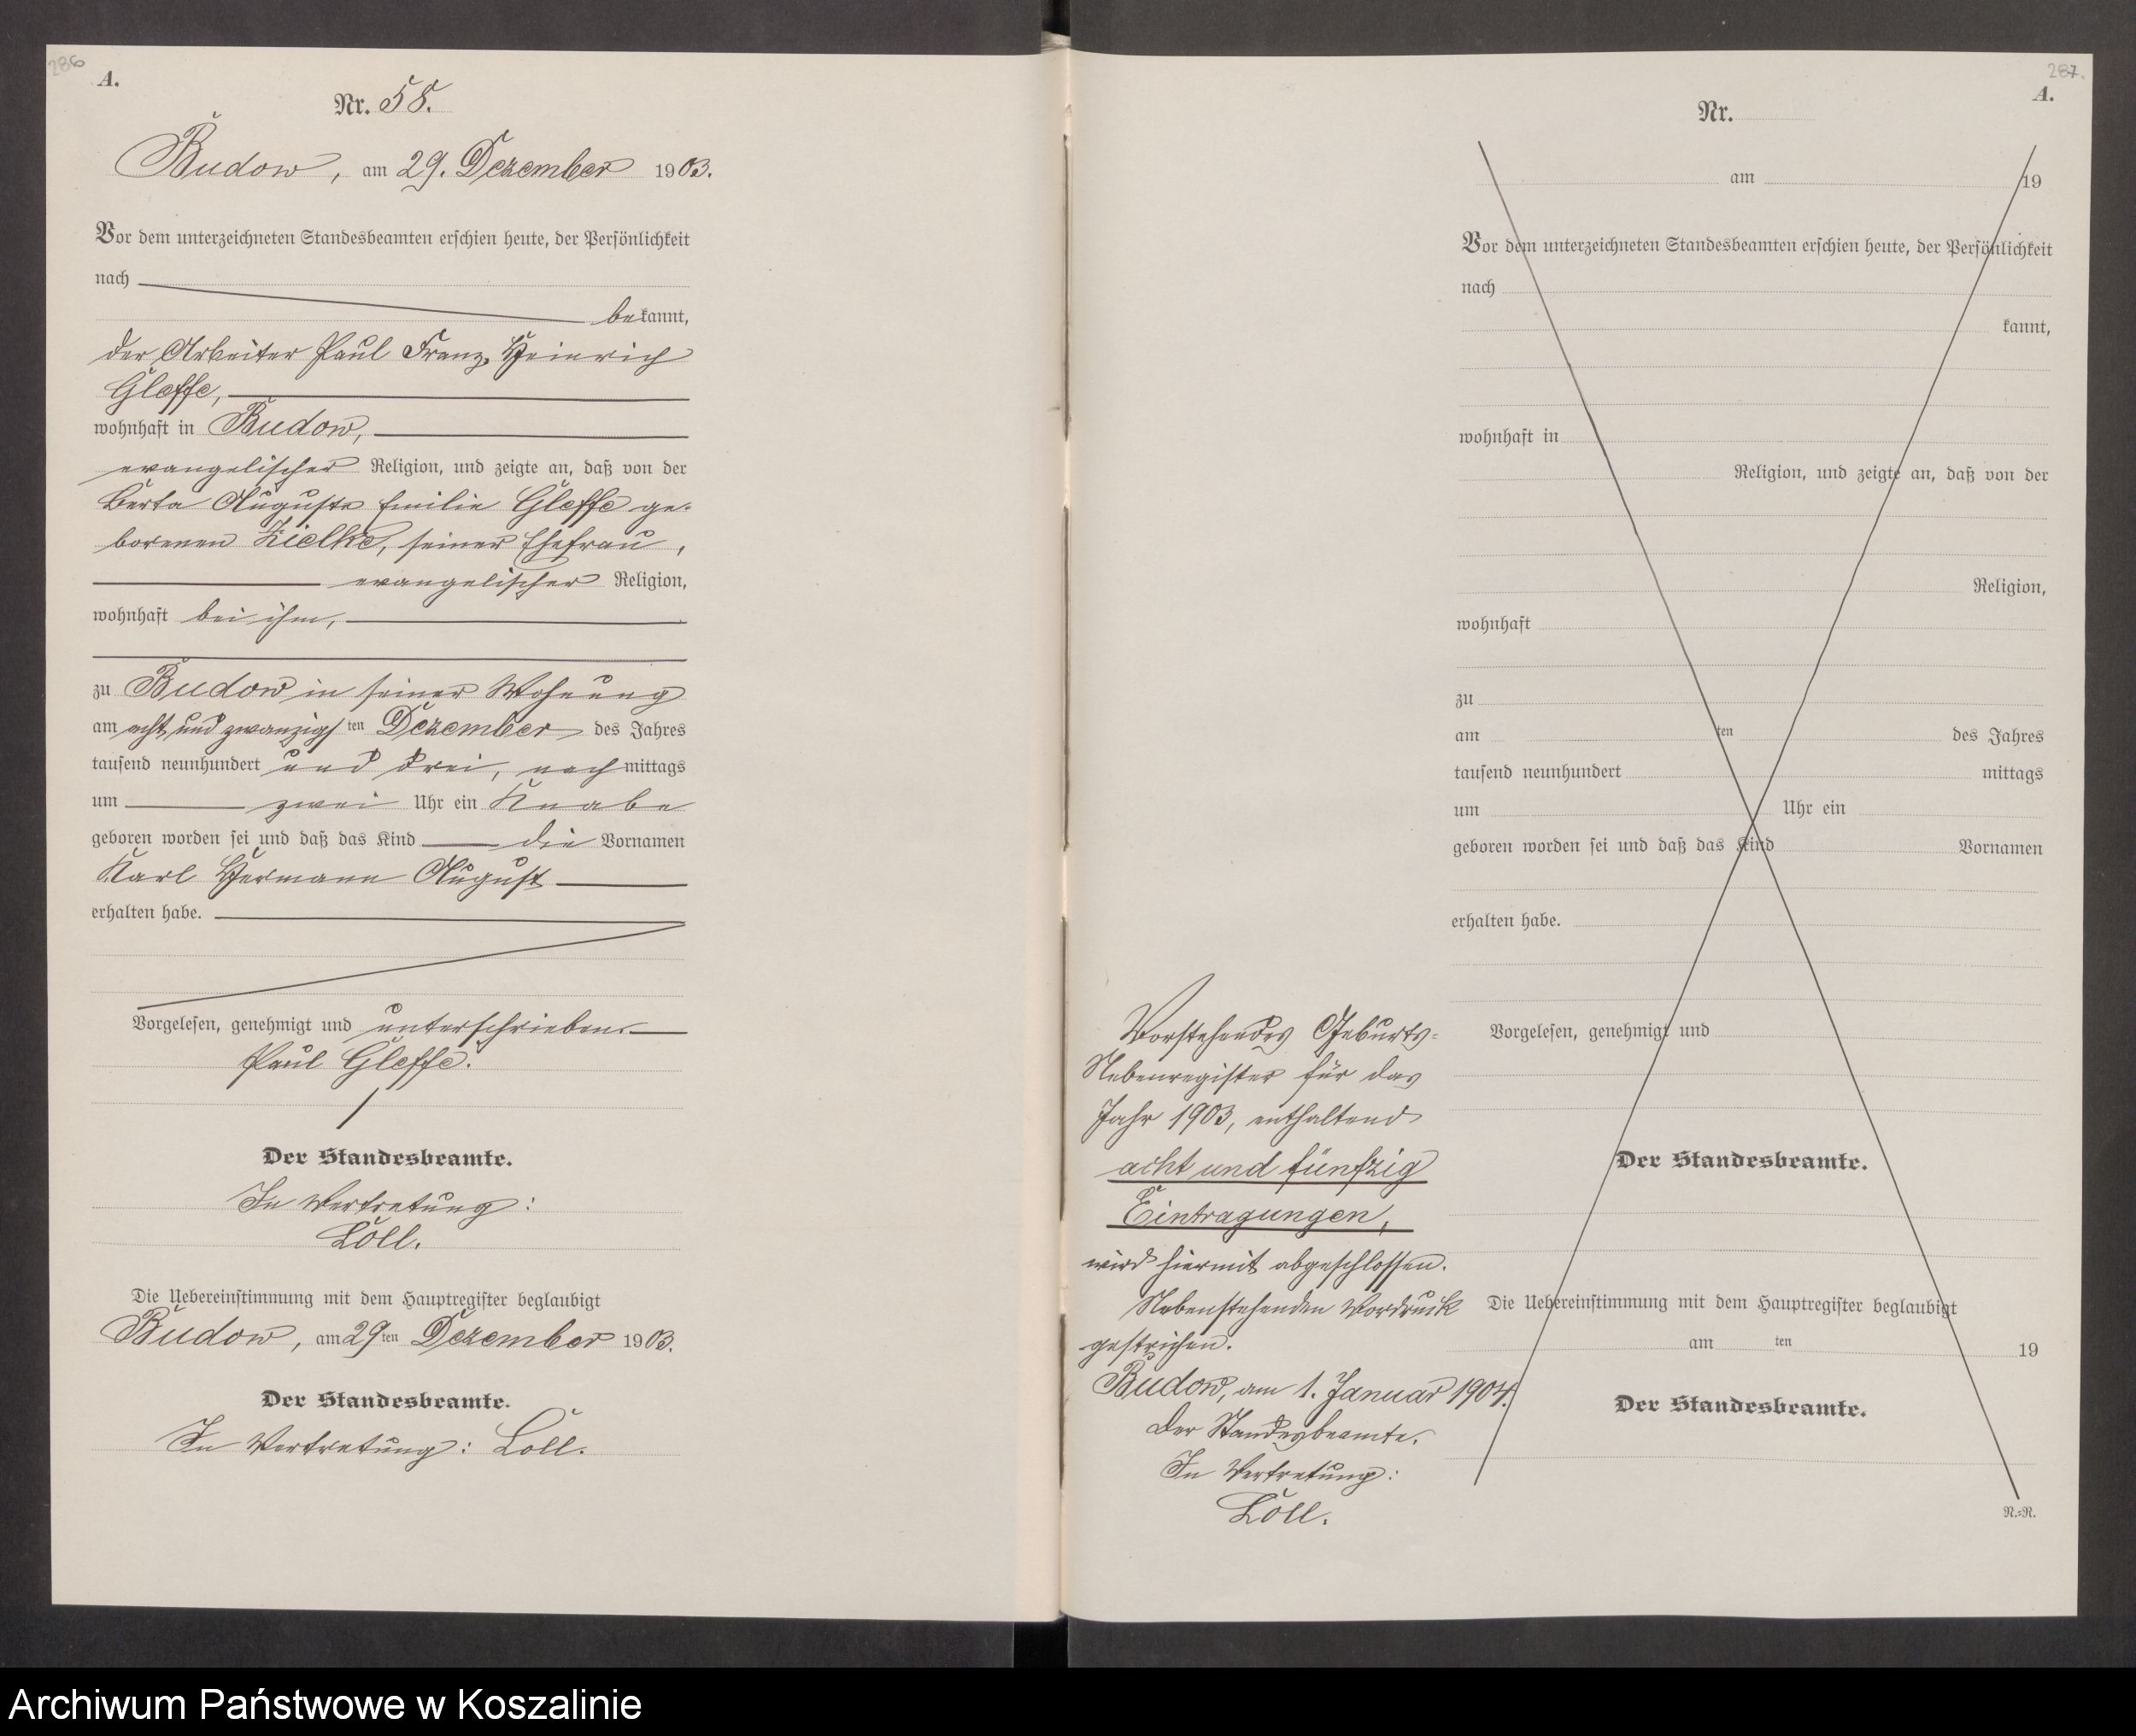 286
A.
Nr. 58.
Budow, am 29. Dezember 1903.
Vor dem unterzeichneten Standesbeamten erschien heute, der Persönlichkeit
nach
bekannt,
der Arbeiter Paul Franz Heinrich
Gleffe,
wohnhaft in Budow,
evangelischer Religion, und zeigte an, daß von der
Berta Auguste Emilie Gleffe ge-
borenen Zielke, seiner Ehefrau,
evangelischer Religion,
wohnhaft bei ihm,
zu Budow in seiner Wohnung
am acht und zwanzigsten Dezember des Jahres
tausend neunhundert und drei, nachmittags
um zwei Uhr ein Knabe
geboren worden sei und daß das Kind die Vornamen
Karl Hermann August
erhalten habe.
Vorgelesen, genehmigt und unterschrieben.
Paul Gleffe.
Der Standesbeamte.
In Vertretung:
Löll.
Die Uebereinstimmung mit dem Hauptregister beglaubigt
Budow, am 29ten Dezember 1903.
Der Standesbeamte.
In Vertretung: Löll.
287.
A.
Nr.
am 19
Vor dem unterzeichneten Standesbeamten erschien heute, der Persönlichkeit
nach
kannt,
wohnhaft in
Religion, und zeigte an, daß von der
Religion,
wohnhaft
zu
am ten des Jahres
tausend neunhundert mittags
um Uhr ein
geboren worden sei und daß das Kind Vornamen
erhalten habe.
Vorgelesen, genehmigt und
Der Standesbeamte.
Die Uebereinstimmung mit dem Hauptregister beglaubigt
am ten 19
Der Standesbeamte.
N.=R.
Vorstehendes Geburts-
Nebenregister für das
Jahr 1903, enthaltend
acht und fünfzig
Eintragungen,
wird hiermit abgeschlossen.
Nebenstehenden Vordruck
gestrichen.
Budow, am 1. Januar 1904.
Der Standesbeamte.
In Vertretung:
Löll.
Archiwum Państwowe w Koszalinie